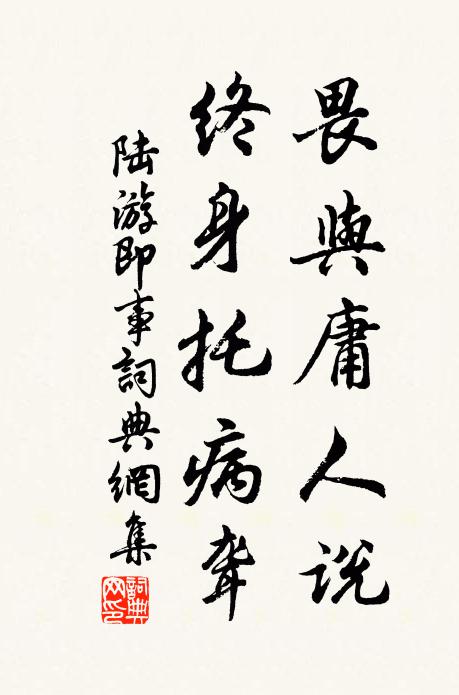 畏與庸人説
終身托病聾
陸游即事詞典網集
詞典网印